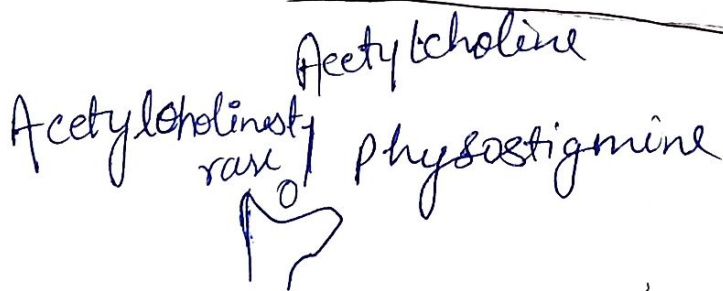 Acetylcholine
Acetylcholinest
rase
physostigmine